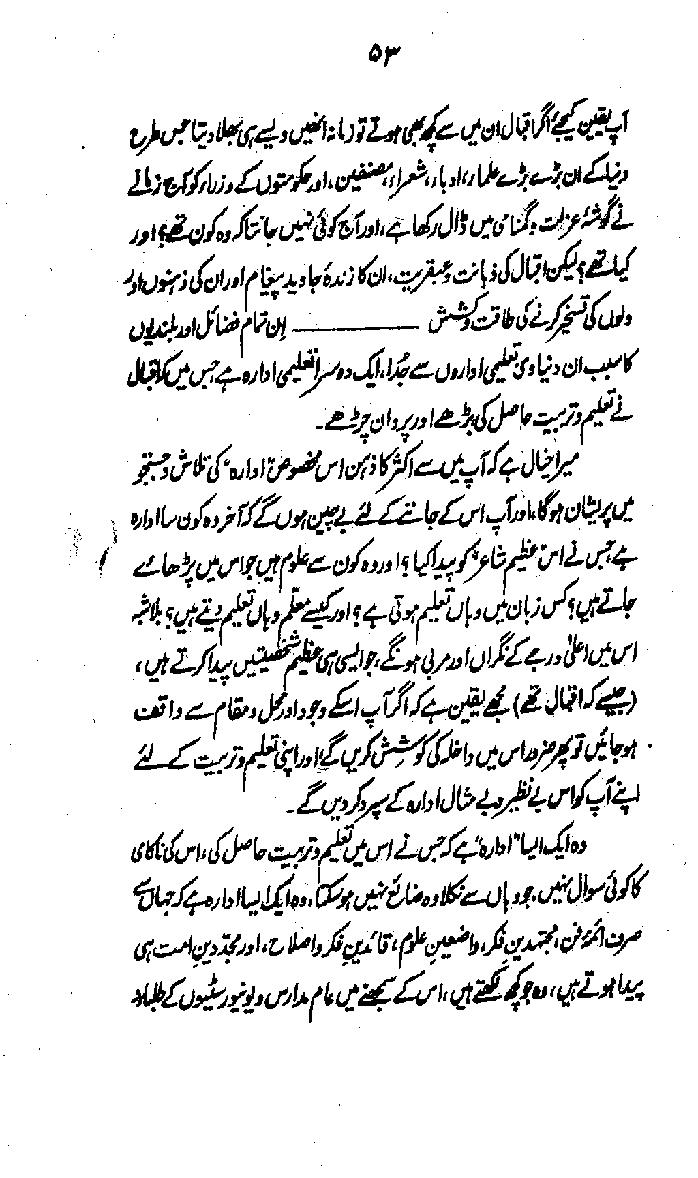 ۵۳
آپ یقین کیجئے اگر اقبال ان میں سے کچھ بھی ہوتے تو زمانہ انھیں ویسے ہی بھلا دیتا جس طرح
دنیا کے ان بڑے بڑے علماء، ادباء، شعراء، مصنفین، اور حکومتوں کے وزراء کو آج زمانے
نے گوشۂ عزلت و گمنامی میں ڈال رکھا ہے، اور آج کوئی نہیں جانتا کہ وہ کون تھے؟ اور
کیا تھے؟ لیکن اقبال کی ذہانت و عبقریت، ان کا زندۂ جاوید پیغام اور ان کی ذہنوں اور
دلوں کی تسخیر کرنے کی طاقت و کشش ـــــــــــــ اِن تمام فضائل اور بلندیوں
کا سبب ان دنیاوی تعلیمی اداروں سے جُدا، ایک دوسرا تعلیمی ادارہ ہے جس میں کہ اقبال
نے تعلیم و تربیت حاصل کی بڑھے اور پروان چڑھے۔
میرا خیال ہے کہ آپ میں سے اکثر کا ذہن اس مخصوص "ادارہ" کی تلاش و جستجو
میں پریشان ہوگا، اور آپ اس کے جاننے کے لئے بے چین ہوں گے کہ آخر وہ کون سا ادارہ
ہے، جس نے اس عظیم شاعر کو پیدا کیا؟ اور وہ کون سے علوم ہیں جو اس میں پڑھائے
جاتے ہیں؟ کس زبان میں وہاں تعلیم ہوتی ہے؟ اور کیسے معلّم وہاں تعلیم دیتے ہیں؟ بلاشبہ
اس میں اعلیٰ درجے کے نگراں اور مربی ہونگے، جو ایسی ہی عظیم شخصیتیں پیدا کرتے ہیں،
(جیسے کہ اقبال تھے) مجھے یقین ہے کہ اگر آپ اسکے وجود اور محل و مقام سے واقف
ہو جائیں تو پھر ضرور اس میں داخلہ کی کوشش کریں گے اور اپنی تعلیم و تربیت کے لئے
اپنے آپ کو اس بے نظیر و بے مثال ادارہ کے سپرد کر دیں گے۔
وہ ایک ایسا "ادارہ" ہے کہ جس نے اس میں تعلیم و تربیت حاصل کی، اس کی ناکامی
کا کوئی سوال نہیں، جو وہاں سے نکلا وہ ضائع نہیں ہو سکتا، وہ ایک ایسا ادارہ ہے کہ جہاں سے
صرف ائمۂ فن، مجتہدینِ فکر، واضعینِ علوم، قائدینِ فکر و اصلاح، اور مجدّدینِ امت ہی
پیدا ہوتے ہیں، وہ جو کچھ لکھتے ہیں، اس کے سمجھنے میں عام مدارس و یونیورسٹیوں کے طلباء